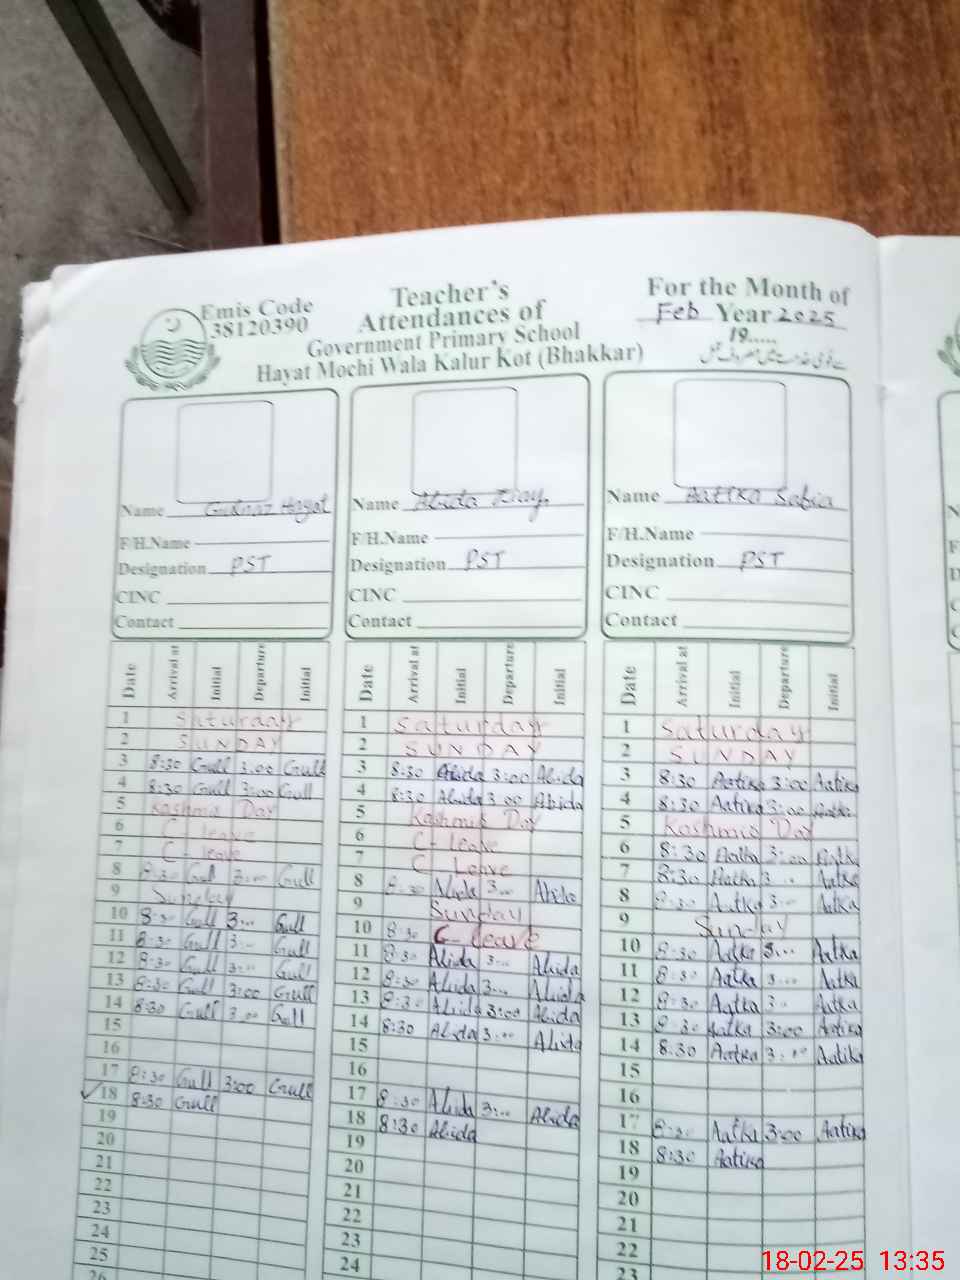 Emis Code
38120390
Teacher's
Attendances of
Government Primary School
Hayat Mochi Wala Kalur Kot (Bhakkar)
For the Month of
Feb Year 2025
19.....
Name Gulnaz Hayat
F/H.Name
Designation PST
CINC
Contact
Name Abida
F/H.Name
Designation PST
CINC
Contact
Name Aatika Safia
F/H.Name
Designation PST
CINC
Contact
Date Arrival at Initial Departure Initial
1 Saturday
2 SUNDAY
3 8:30 Gull 3:00 Gull
4 8:30 Gull 3:00 Gull
5 Kashmir Day
6 C-leave
7 C-leave
8 8:30 Gull 3:00 Gull
9 Sunday
10 8:30 Gull 3... Gull
11 8:30 Gull 3... Gull
12 8:30 Gull 3:00 Gull
13 8:30 Gull 3:00 Gull
14 8:30 Gull 3:00 Gull
15
16
17 8:30 Gull 3:00 Gull
18 8:30 Gull
19
20
21
22
23
24
25
26
Date Arrival at Initial Departure Initial
1 Saturday
2 SUNDAY
3 8:30 Abida 3:00 Abida
4 8:30 Abida 3:00 Abida
5 Kashmir Day
6 C-leave
7 C Leave
8 8:30 Abida 3... Abida
9 Sunday
10 8:30 C-leave
11 8:30 Abida 3... Abida
12 8:30 Abida 3... Abida
13 8:30 Abida 3:00 Abida
14 8:30 Abida 3:00 Abida
15
16
17 8:30 Abida 3:.. Abida
18 8:30 Abida
19
20
21
22
23
24
Date Arrival at Initial Departure Initial
1 Saturday
2 SUNDAY
3 8:30 Aatika 3:00 Aatika
4 8:30 Aatika 3:00 Aatika
5 Kashmir Day
6 8:30 Aatka 3:00 Aatka
7 8:30 Aatka 3... Aatka
8 8:30 Aatka 3... Aatka
9 Sunday
10 8:30 Aatka 3... Aatka
11 8:30 Aatka 3... Aatka
12 8:30 Aatka 3... Aatka
13 8:30 Aatka 3:00 Aatika
14 8:30 Aatka 3:00 Aatika
15
16
17 8:30 Aatka 3:00 Aatika
18 8:30 Aatika
19
20
21
22
23
18-02-25 13:35